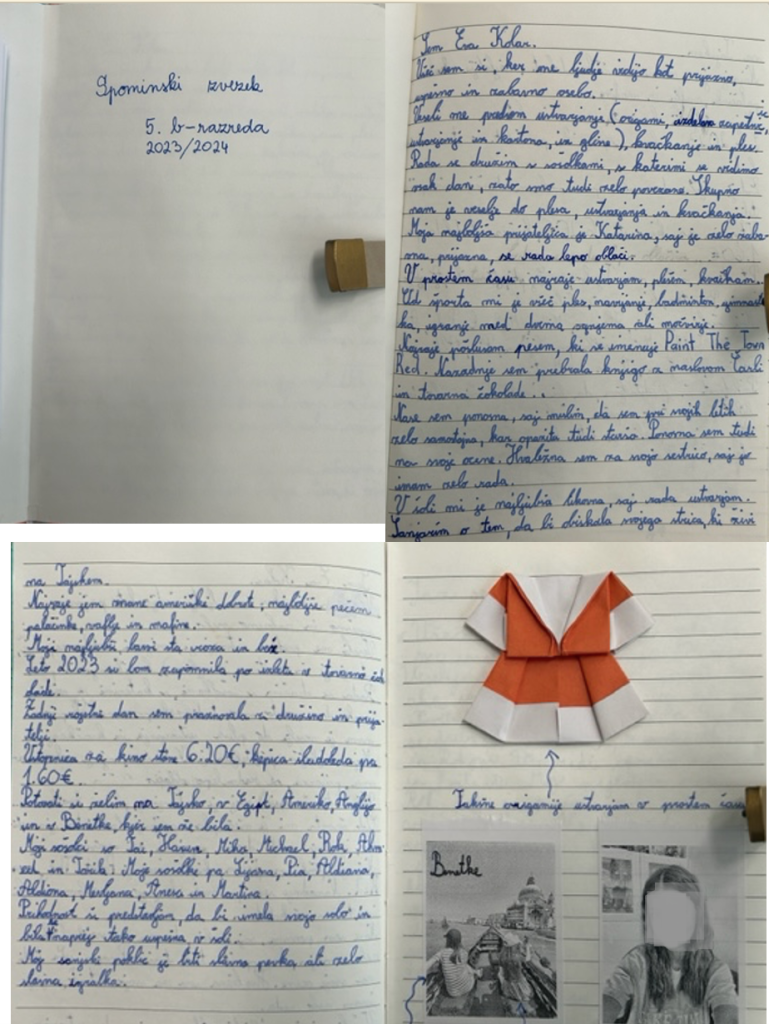 Spominski zvezek
5. b-razreda
2023/2024
Sem Eva Kolar.
Všeč sem si, ker me ljudje vidijo kot prijazno,
uspešno in zabavno osebo.
Veseli me predvsem ustvarjanje (origami, izdelava zapestnic,
ustvarjanje iz kartona, iz gline), kvačkanje in ples.
Rada se družim s sošolkami, s katerimi se vidimo
vsak dan, zato smo tudi zelo povezane. Skupno
nam je veselje do plesa, ustvarjanja in kvačkanja.
Moja najboljša prijateljica je Katarina, saj je zelo zaba-
vna, prijazna, se rada lepo oblači.
V prostem času najraje ustvarjam, plešem, kvačkam.
Od športa mi je všeč ples, navijanje, badminton, gimnasti-
ka, igranje med dvema ognjema ali močvirje.
Najraje poslušam pesem, ki se imenuje Paint The Town
Red. Nazadnje sem prebrala knjigo z naslovom Čarli
in tovarna čokolade.
Nase sem ponosna, saj mislim, da sem pri svojih letih
zelo samostojna, kar opazita tudi starša. Ponosna sem tudi
na svoje ocene. Hvaležna sem za svojo sestrico, saj jo
imam zelo rada.
V šoli mi je najljubša likovna, saj rada ustvarjam.
Sanjarim o tem, da bi obiskala svojega strica, ki živi
na Tajskem.
Najraje jem razne ameriške dobrote, najboljše pečem
palačinke, vaflje in mafine.
Moji najljubši barvi sta roza in bež.
Leto 2023 si bom zapomnila po izletu v tovarno čoko
lade.
Zadnji rojstni dan sem praznovala z družino in prija-
telji.
Vstopnica za kino stane 6.20€, kepica sladoleda pa
1.60€.
Potovati si želim na Tajsko, v Egipt, Ameriko, Anglijo
in v Benetke, kjer sem že bila.
Moji sošolci so Tai, Miha, Michael, Rok, Ah-
med in Moje sošolke pa Pia, Aldiana,
Aldiona, in Martina.
Prihodnost si predstavljam, da bi imela svojo šolo in
bila naprej tako uspešna v šoli.
Moj sanjski poklic je biti slavna pevka ali zelo
slavna igralka.
Takšne origamije ustvarjam v prostem času
Benetke